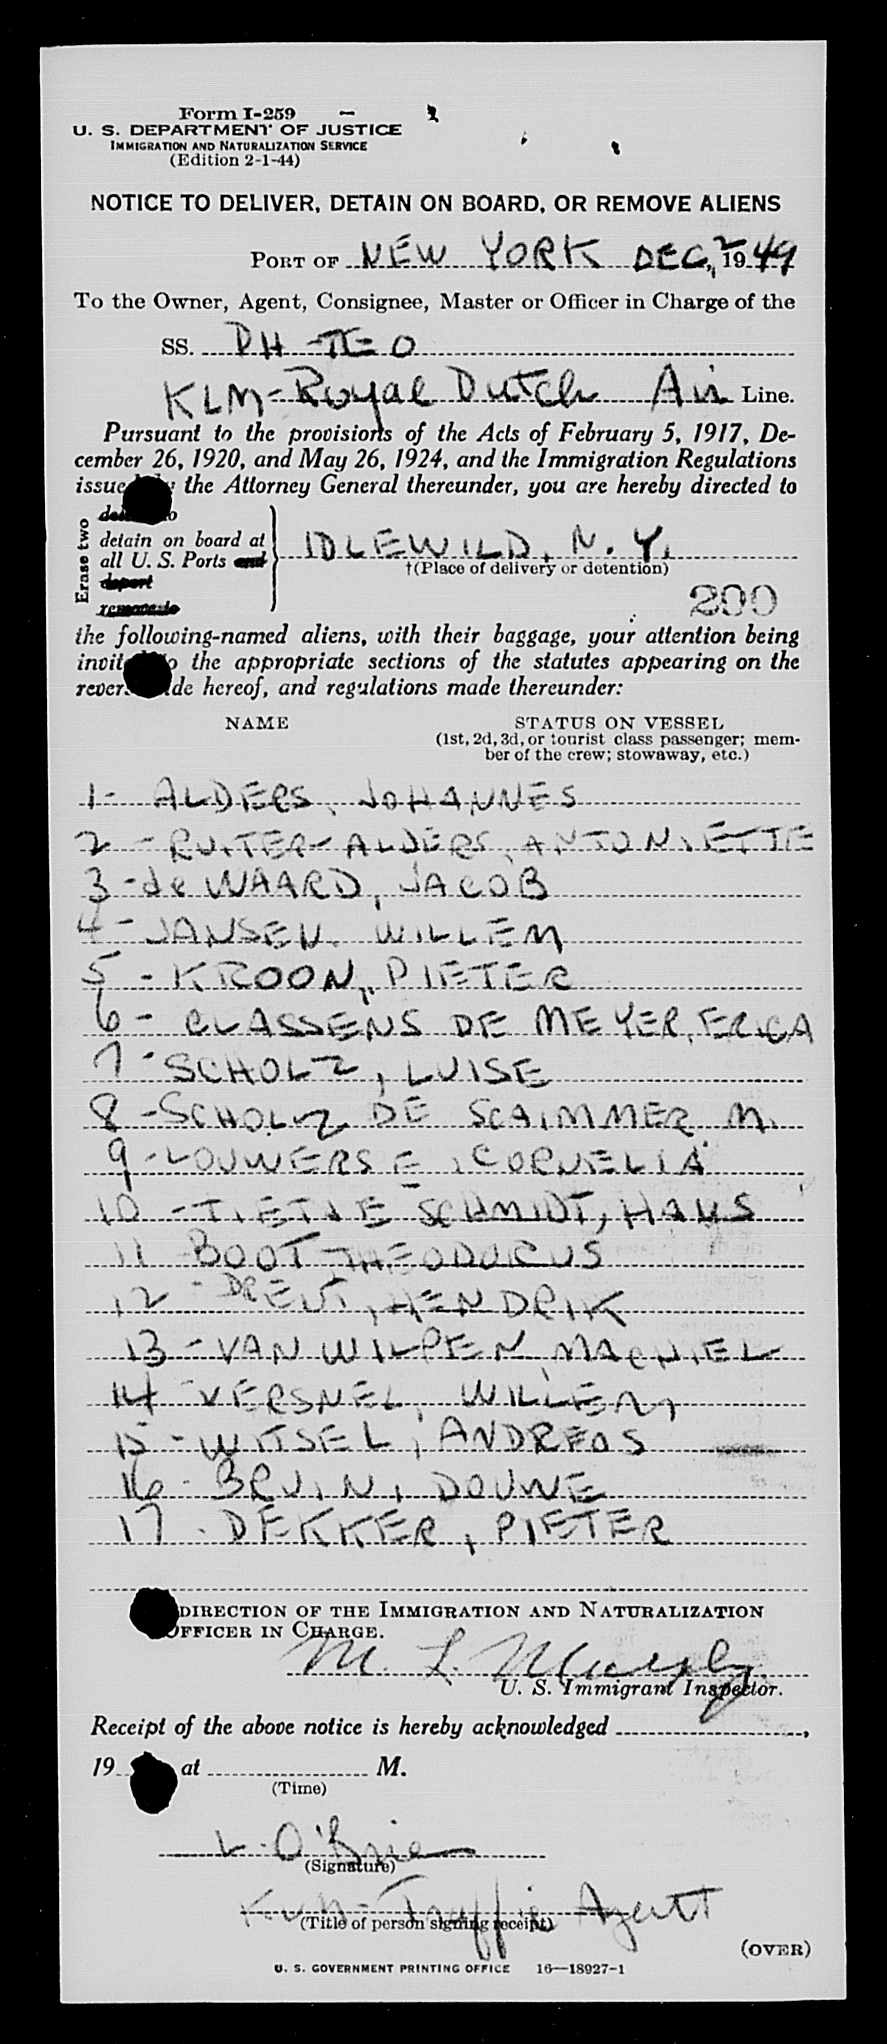 Form I-259
U. S. DEPARTMENT OF JUSTICE
IMMIGRATION AND NATURALIZATION SERVICE
(Edition 2-1-44)
NOTICE TO DELIVER, DETAIN ON BOARD, OR REMOVE ALIENS
PORT OF NEW YORK DEC, 2 1949
To the Owner, Agent, Consignee, Master or Officer in Charge of the
SS. PH-TEO
KLM-Royal Dutch Air Line.
Pursuant to the provisions of the Acts of February 5, 1917, De-
cember 26, 1920, and May 26, 1924, and the Immigration Regulations
issued by the Attorney General thereunder, you are hereby directed to
Erase two
detain on board at
all U. S. Ports and
deport
remove to
IDLEWILD, N. Y.
†(Place of delivery or detention)
290
the following-named aliens, with their baggage, your attention being
invited to the appropriate sections of the statutes appearing on the
reverse side hereof, and regulations made thereunder:
NAME STATUS ON VESSEL
(1st, 2d, 3d, or tourist class passenger; mem-
ber of the crew; stowaway, etc.)
1- ALDERS, JOHANNES
2 - RUITER-ALDERS, ANTONIETTE
3 - de WAARD, JACOB
4 - JANSEN. WILLEM
5 - KROON, PIETER
6 - CLASSENS DE MEYER, ERICA
7 - SCHOLZ, LUISE
8 - SCHOLZ DE M.
9 - LOUWERSE, CORNELIA
10 - TIETJE SCHMIDT, HANS
11 BOOT, THEODORUS
12 - DRENT, HENDRIK
13 - VAN WILPEN, MACHIEL
14 - VERSNEL, WILLEM
15 - WITSEL, ANDREAS
16 - BRUIN, DOUWE
17 - DEKKER, PIETER
DIRECTION OF THE IMMIGRATION AND NATURALIZATION
OFFICER IN CHARGE.
M. L.
U. S. Immigrant Inspector.
Receipt of the above notice is hereby acknowledged ,
19 at M.
(Time)
L. O'Brien
(Signature)
KLM - Traffic Agent
(Title of person signing receipt)
(OVER)
U. S. GOVERNMENT PRINTING OFFICE 16—18927-1